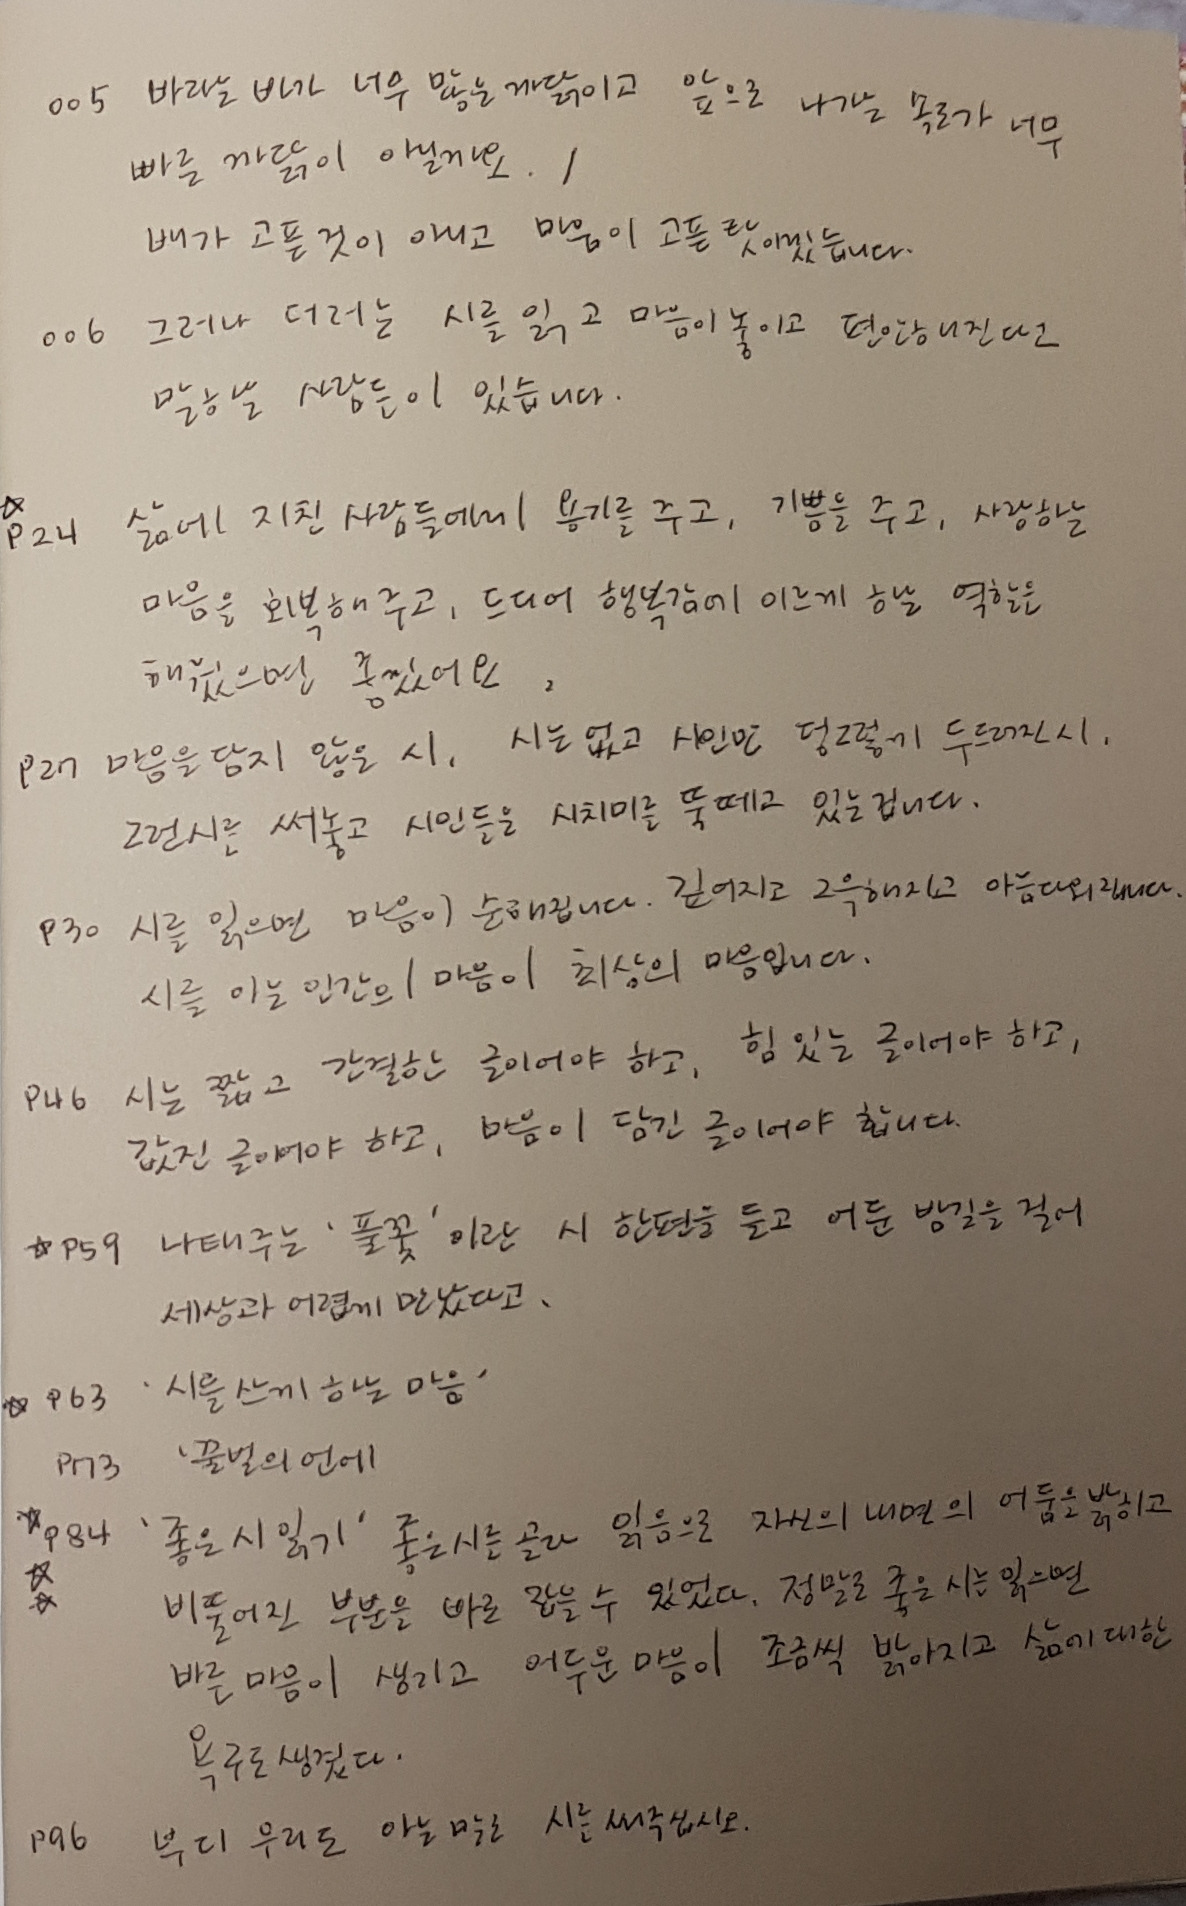 005 바라는 바가 너무 많은 까닭이고 앞으로 나가는 속도가 너무
빠른 까닭이 아닐까요. /
배가 고픈것이 아니고 마음이 고픈 탓이겠습니다.
006 그러나 더러는 시를 읽고 마음이 놓이고 편안해진다고
말하는 사람들이 있습니다.
☆
P24 삶에 지친 사람들에게 용기를 주고, 기쁨을 주고, 사랑하는
마음을 회복해주고, 드디어 행복감에 이르게 하는 역할을
해줬으면 좋겠어요.
P27 마음을 담지 않은 시, 시는 없고 시인만 덩그렇게 두드러진 시,
그런시를 써놓고 시인들은 시치미를 뚝떼고 있는겁니다.
P30 시를 읽으면 마음이 순해집니다. 깊어지고 그윽해지고 아름다워집니다.
시를 아는 인간의 마음이 최상의 마음입니다.
P46 시는 짧고 간결한 글이어야 하고, 힘 있는 글이어야 하고,
값진 글이어야 하고, 마음이 담긴 글이어야 합니다.
☆P59 나태주는 '풀꽃'이란 시 한편을 들고 어둔 밤길을 걸어
세상과 어렵게 만났다고.
☆ P63 '시를 쓰게 하는 마음'
P73 '꿀벌의 언어'
☆P84 '좋은 시 읽기' 좋은시를 골라 읽음으로 자신의 내면의 어둠을 밝히고
☆
☆ 비뚤어진 부분을 바로 잡을 수 있었다. 정말로 좋은 시는 읽으면
바른 마음이 생기고 어두운 마음이 조금씩 밝아지고 삶에 대한
욕구도 생겼다.
P96 부디 우리도 아는 말로 시를 써주십시오.